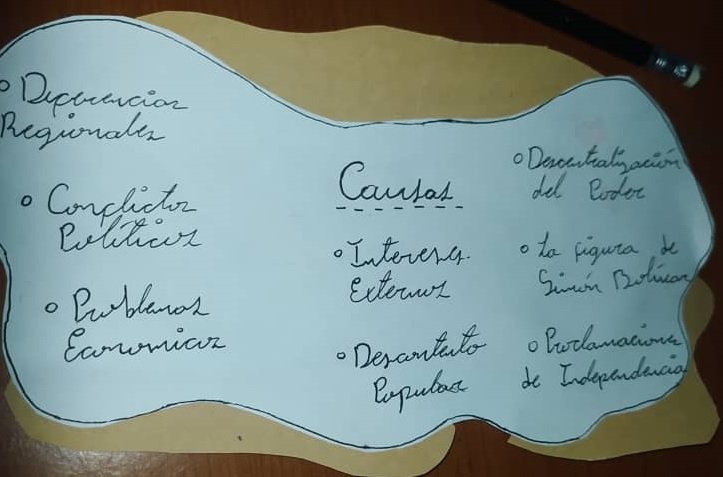 Causas
° Diferencias
Regionales
° Conflictos
Políticos
° Problemas
Economicos
° Intereses
Externos
° Descontento
Popular
° Descentralización
del Poder
° La figura de
Simón Bolívar
° Proclamaciones
de Independencia